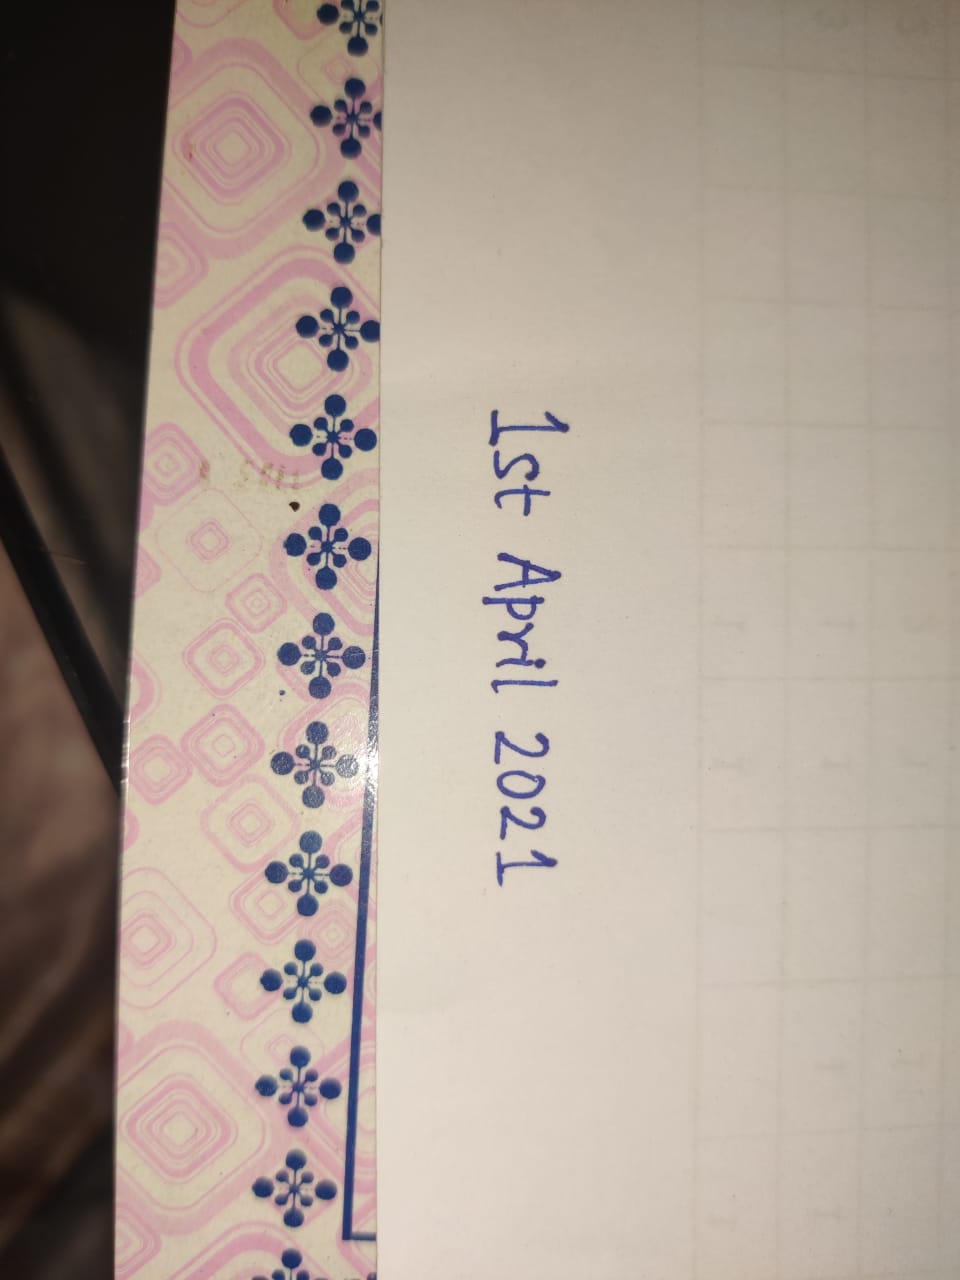 1st April 2021